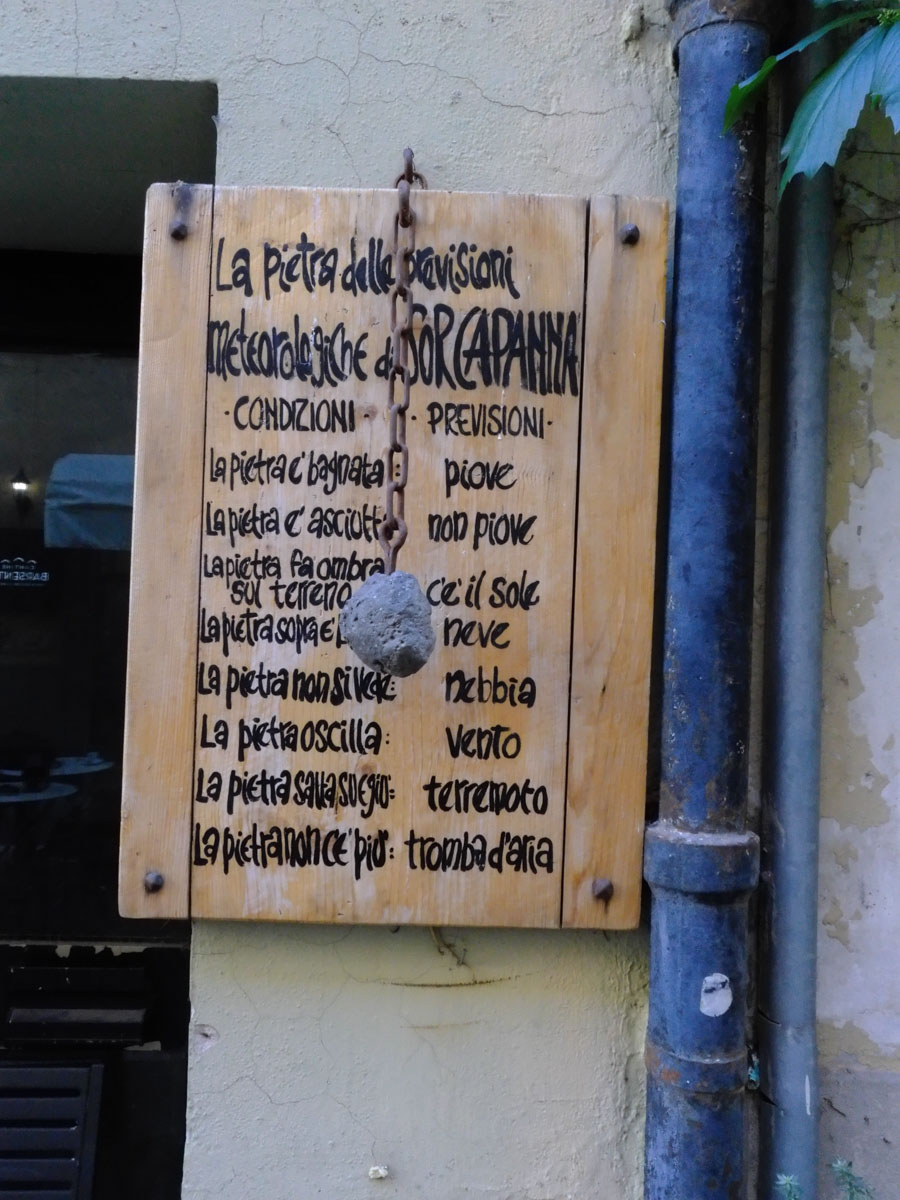 La pietra delle previsioni
meteorologiche di SOR CAPANNA
·CONDIZIONI· ·PREVISIONI·
La pietra e' bagnata: piove
La pietra e' asciutta non piove
La pietra fa ombra
sul terreno c'e' il sole
La pietra sopra e' neve
La pietra non si vede: nebbia
La pietra oscilla: vento
La pietra salta su e giu': terremoto
La pietra non c'e' piu': tromba d'aria